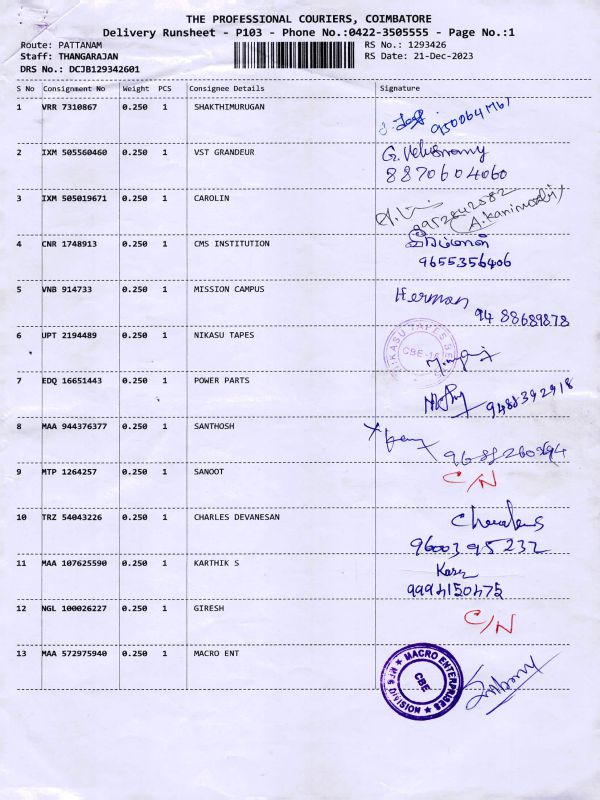 THE PROFESSIONAL COURIERS, COIMBATORE
Delivery Runsheet - P103 - Phone No.:0422-3505555 - Page No.:1
Route: PATTANAM RS No.: 1293426
Staff: THANGARAJAN RS Date: 21-Dec-2023
DRS No.: DCJB129342601
S No Consignment No Weight PCS Consignee Details Signature
1 VRR 7310867 0.250 1 SHAKTHIMURUGAN
2 IXM 505560460 0.250 1 VST GRANDEUR G. Velusamy
8870604060
3 IXM 505019671 0.250 1 CAROLIN
9952842582
(A.Kanimozhi)
4 CNR 1748913 0.250 1 CMS INSTITUTION
9655356406
5 VNB 914733 0.250 1 MISSION CAMPUS Herman
94 88689878
6 UPT 2194489 0.250 1 NIKASU TAPES
7 EDQ 16651443 0.250 1 POWER PARTS
9488392918
8 MAA 944376377 0.250 1 SANTHOSH
9 MTP 1264257 0.250 1 SANOOT C/N
10 TRZ 54043226 0.250 1 CHARLES DEVANESAN
9600395232
11 MAA 107625590 0.250 1 KARTHIK S
9994150475
12 NGL 100026227 0.250 1 GIRESH C/N
13 MAA 572975940 0.250 1 MACRO ENT
MACRO ENTERPRISES
CBE
MFG DIVISION